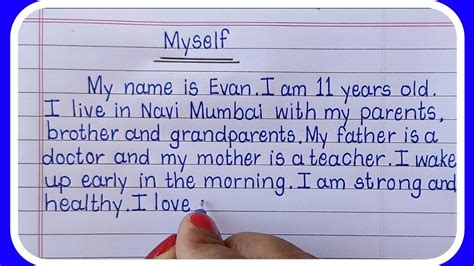 Myself
My name is Evan. I am 11 years old.
I live in Navi Mumbai with my parents,
brother and grandparents. My father is a
doctor and my mother is a teacher. I wake
up early in the morning. I am strong and
healthy. I love